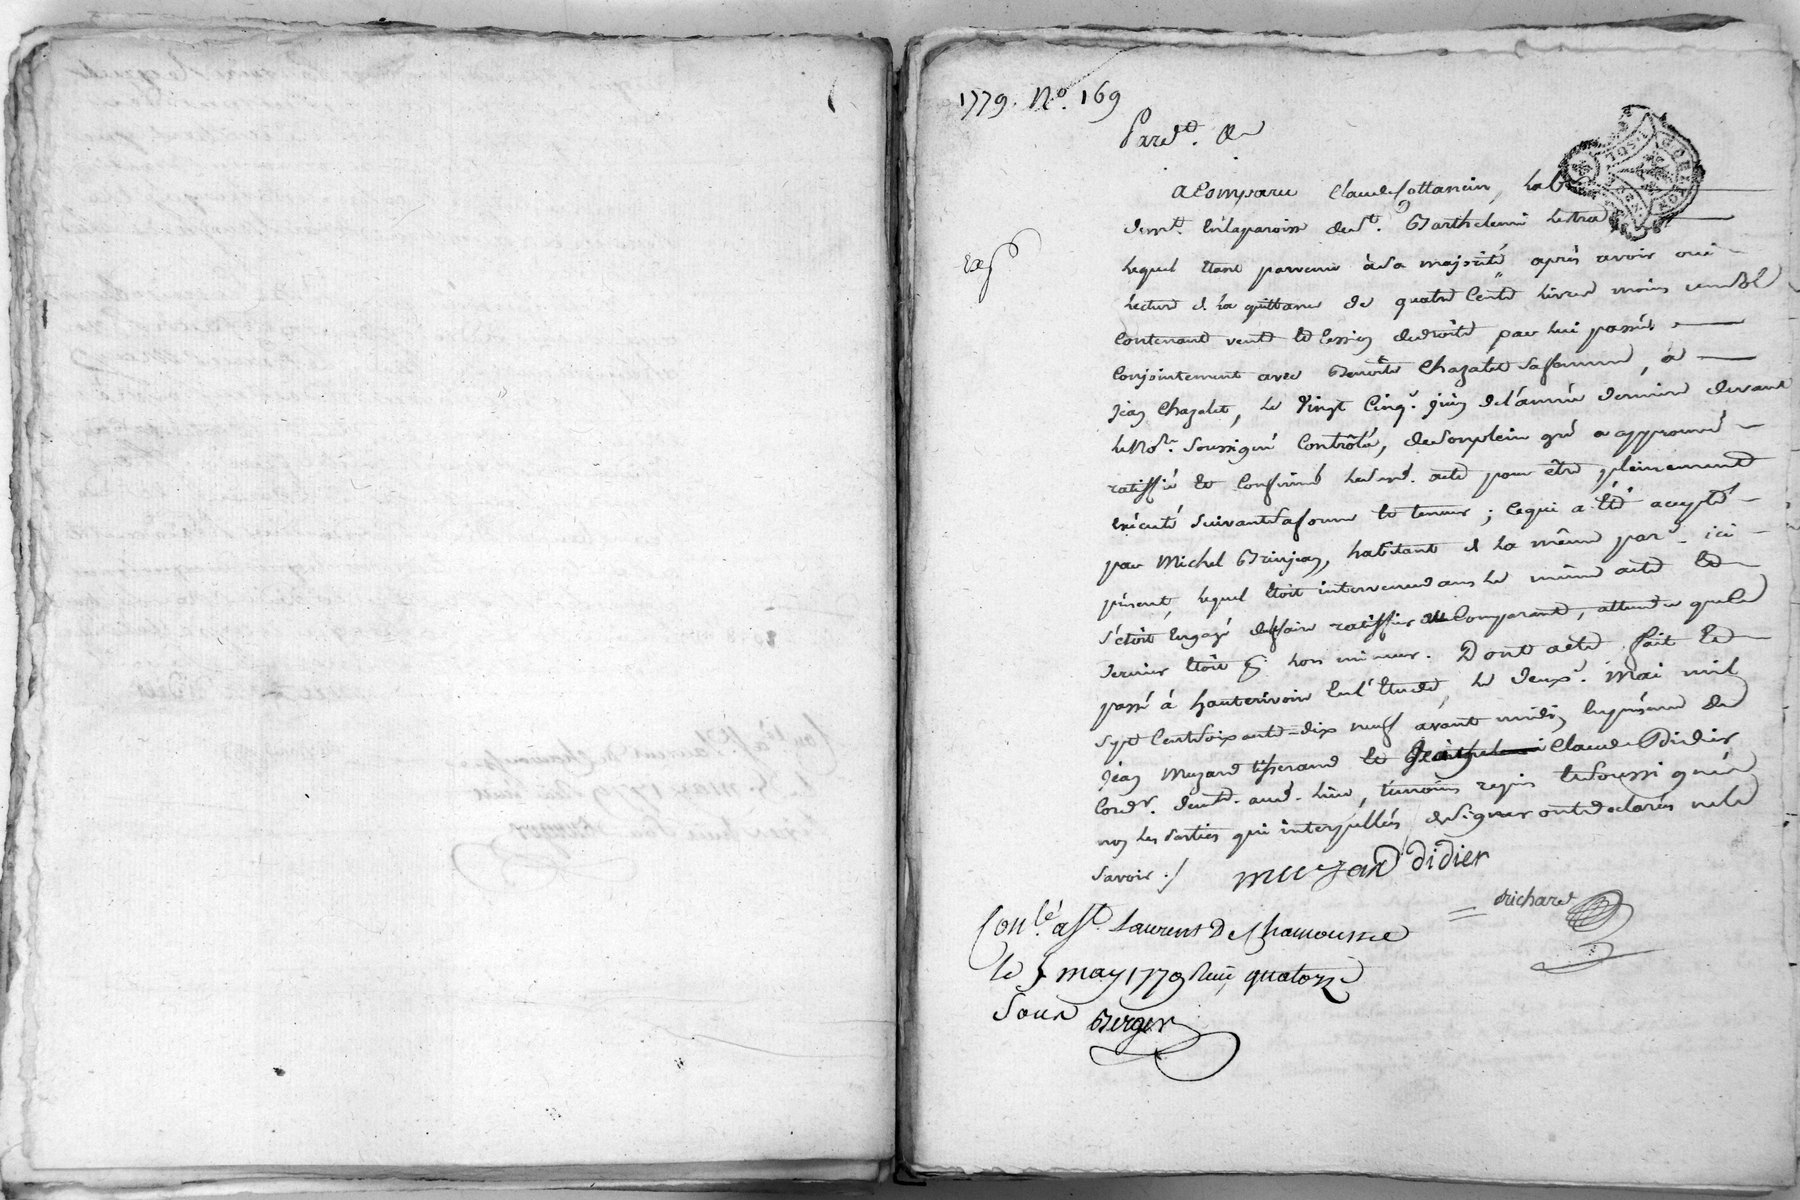 1779. N.º 169
Pard.t &
a Comparu Claude Cottancin, hab.
dem.t en la paroisse de S.t Barthelemi Lestra
lequel etant parvenu à sa majorité après avoir oui
lecture de la quittance de quatre Cents livres moins un sol
Exp
Contenant vente et Cession de droits par lui passée
Conjointement avec Benoîte Chazalet sa femme, à
Jean Chazalet, le vingt Cinq.e juin de l'année dernière devant
le No.re soussigné Contrôlé, de son plein gré a approuvé
ratiffié et Confirmé led. acte pour être pleinement
exécuté suivant sa forme et teneur; ce qui a été accepté
par Michel Brinjean, habitant de la même par. ici
présent, lequel étoit intervenu dans le même acte et
s'étoit engagé de faire ratiffier le Comparant, attendu que ce
dernier étoit lors mineur. Dont acte fait et
passé à hauterivoir en l'étude, le deux.e Mai mil
sept Cent soixante-dix neuf avant midi, en présence de
Jean Muzard tisserand et Claude Didier
Cord.r dem.t aud. lieu, témoins requis et soussignés
non les parties qui interpellées de signer ont déclarés ne le
savoir ./ muzard didier
Richard
Con.lé a S.t Laurent De Chamousset
le 5 may 1779 Reçu quatorze
Sous Berger